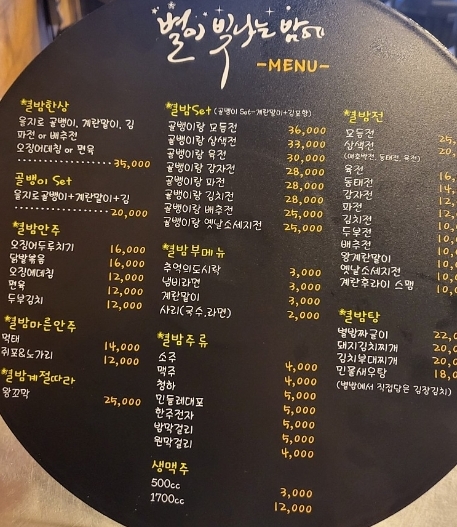 별이 빛나는 밤에
-MENU-
별밤한상
을지로 골뱅이, 계란말이, 김
파전 or 배추전
오징어데침 or 면육
35,000
골뱅이 Set
을지로골뱅이+계란말이+김
20,000
별밤안주
오징어두루치기 16,000
닭발볶음 16,000
오징어데침 12,000
면육 12,000
두부김치 12,000
별밤마른안주
먹태 14,000
쥐포&노가리 12,000
별밤계절따라
왕꼬막 25,000
별밤Set (골뱅이 Set-계란말이+김포함)
골뱅이랑 모듬전 36,000
골뱅이랑 삼색전 33,000
골뱅이랑 육전 30,000
골뱅이랑 감자전 28,000
골뱅이랑 파전 28,000
골뱅이랑 김치전 28,000
골뱅이랑 배추전 25,000
골뱅이랑 옛날소세지전 25,000
별밤부메뉴
추억의도시락 3,000
냄비라면 3,000
계란말이 3,000
사리(국수,라면) 2,000
별밤주류
소주 4,000
맥주 4,000
청하 5,000
민들레대포 5,000
한주전자 5,000
밤막걸리 5,000
원막걸리 4,000
생맥주
500cc 3,000
1700cc 12,000
별밤전
모듬전 25,
삼색전 20,
(애호박전, 동태전, 육전)
육전 16,
동태전 14,
감자전 12,
파전 12,
김치전 10,
두부전 10,
배추전 10,
왕계란말이 10,
옛날소세지전 10,
계란후라이 스팸 10,
별밤탕
별밤짜글이 22,0
돼지김치찌개 20,0
김치부대찌개 20,0
민물새우탕 18,0
(별밤에서 직접담은 김장김치)